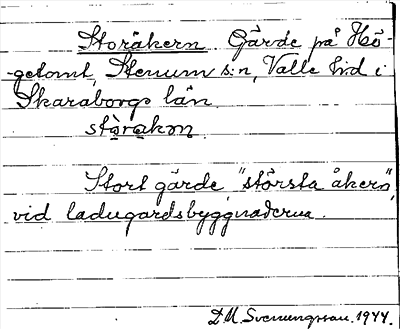 Storåkern Gärde på Hö-
getomt, Stenum s:n, Valle hd i
Skaraborgs län
stòrakən.
Stort gärde, "största åkern",
vid ladugardsbyggnaderna.
D.M. Svenungsson. 1944.